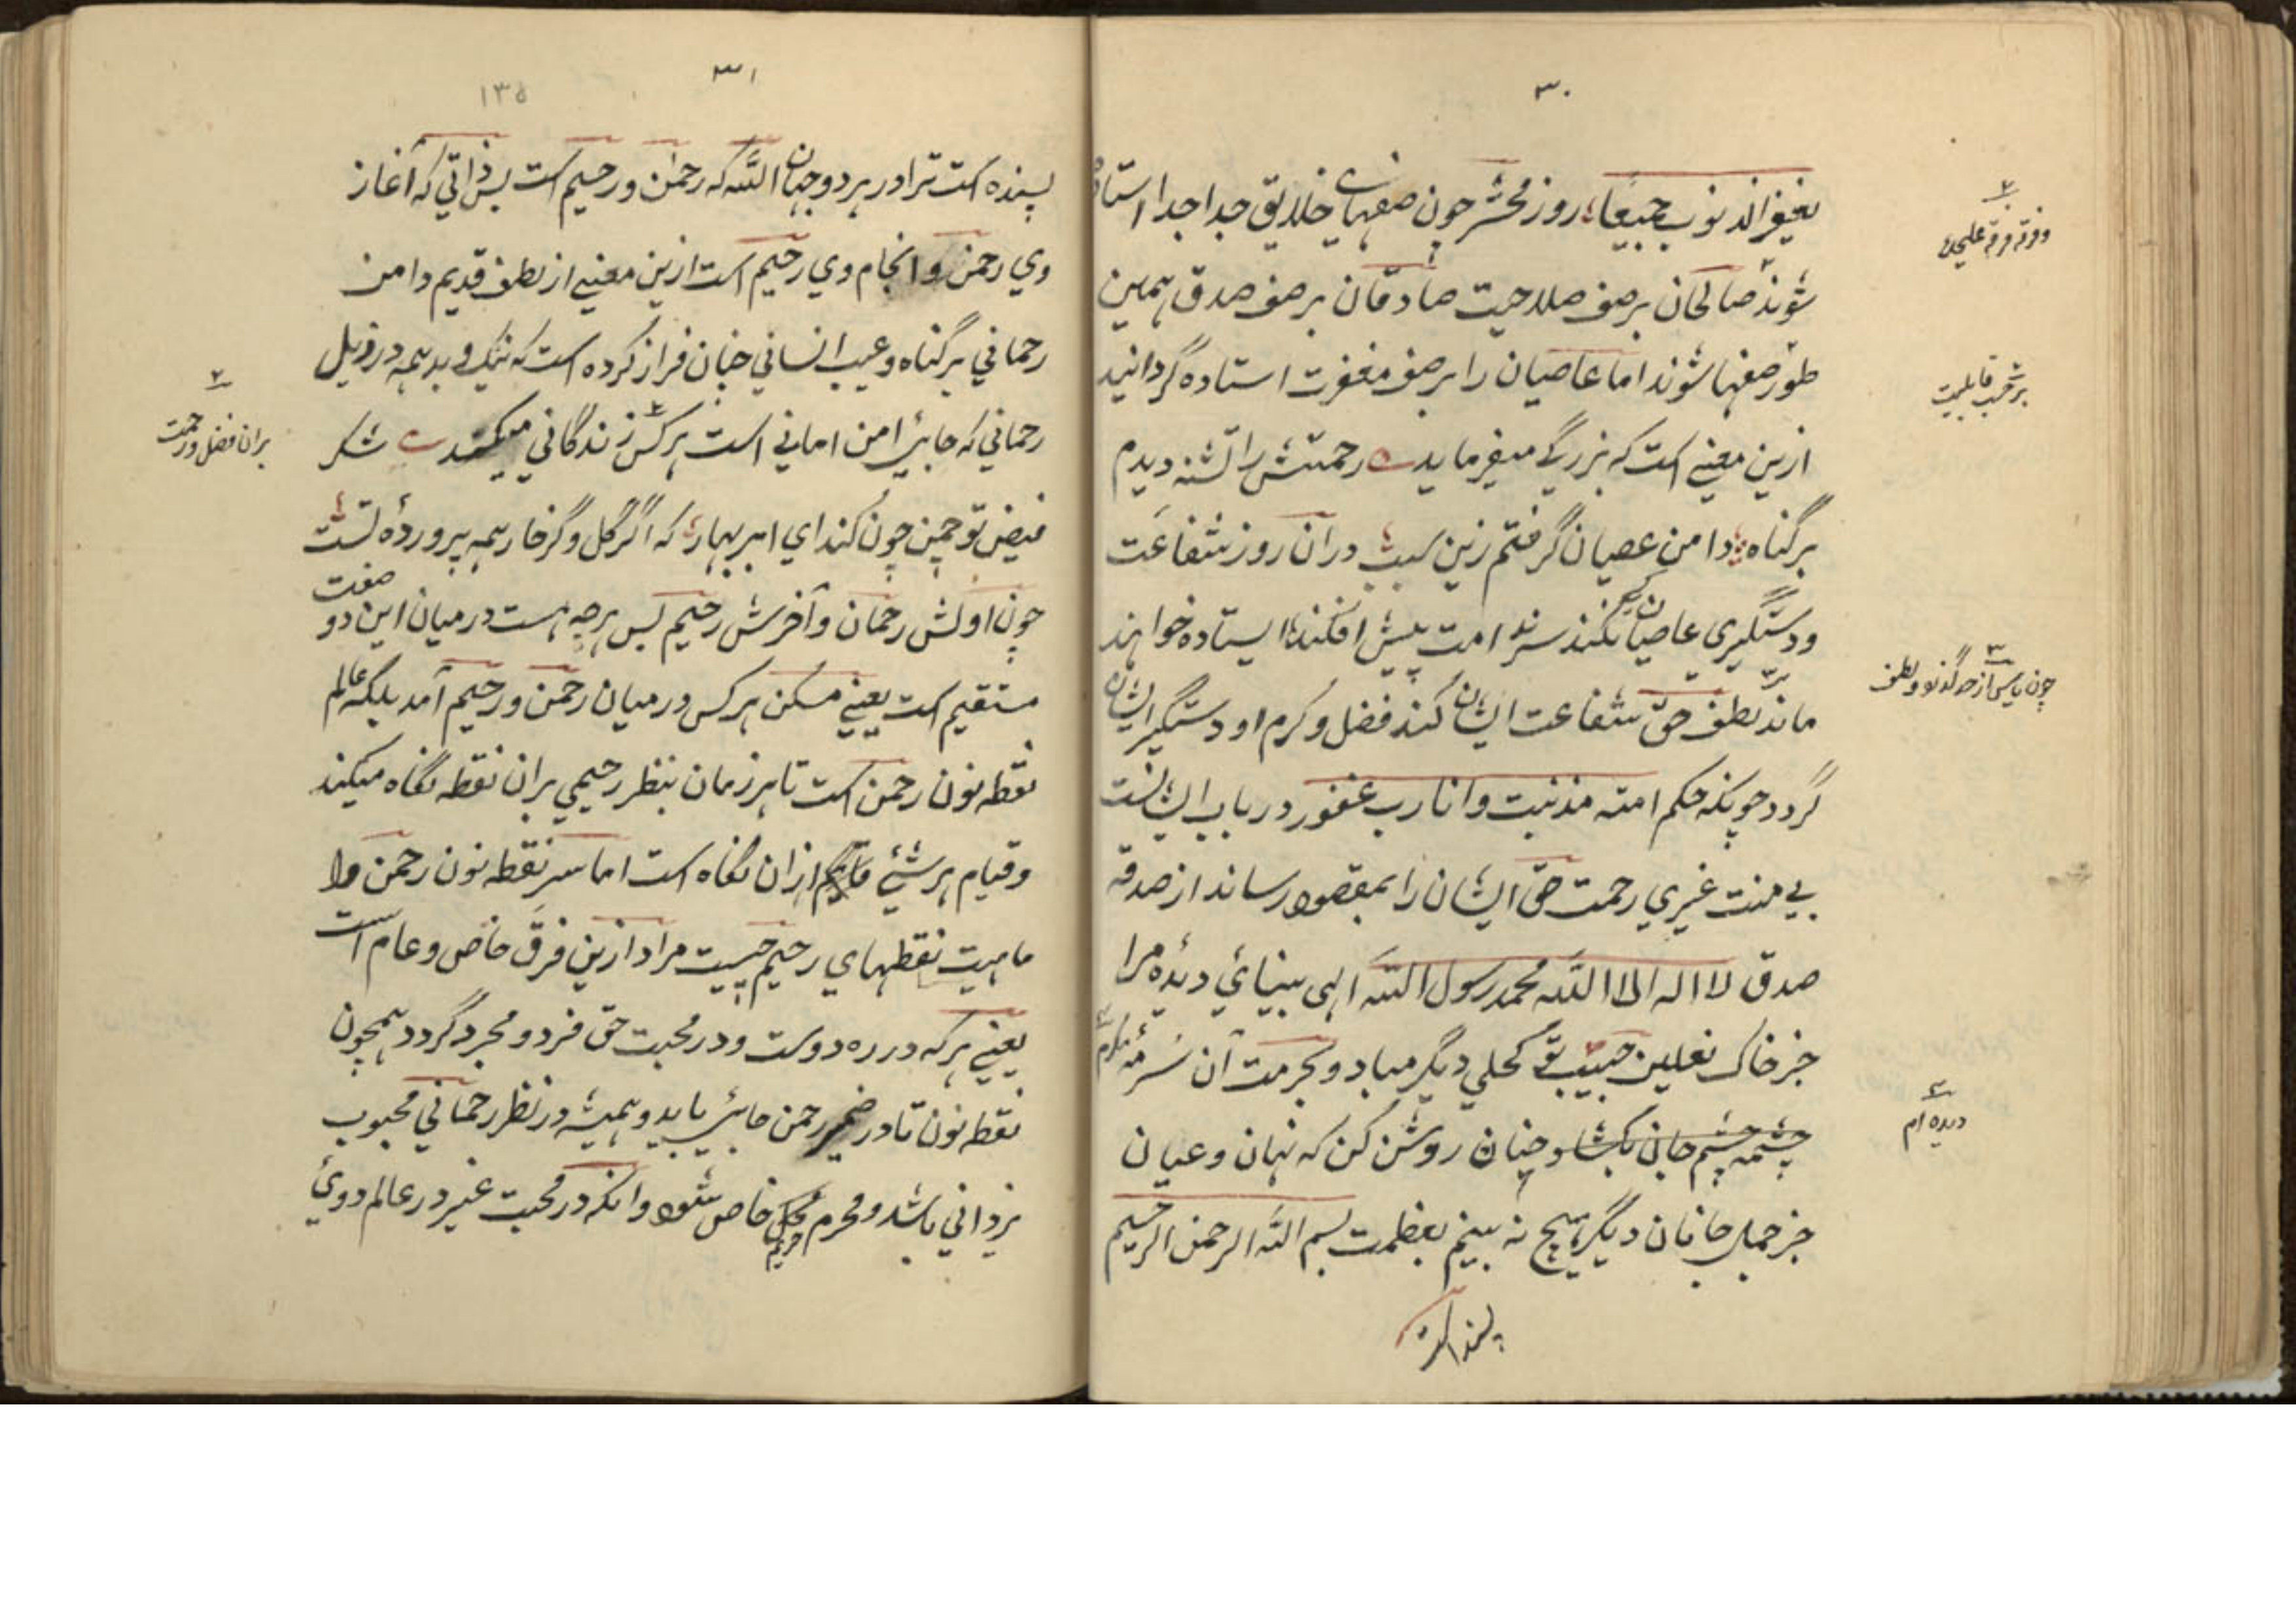 ۳۰
یغفر الذنوب جمیعا روز محشر چون صفهای خلایق جدا جدا استاده
شوند صالحان بر صف صلاحیت صادقان بر صف صدق همین
طور صفها شوند اما عاصیان را بر صف مغفرت استاده گردانید
ازین معنی است که بزرگی میفرماید رحمتش را تشنه دیدم
بر گناه دامن عصیان گرفتم زین سبب دران روز شفاعت
و دستگیری عاصیان نکند سر امت پیش افکنده ایستاده خواهند
ماند لطف حق شفاعت ایشان کند فضل و کرم او دستگیر ایشان
گردد چونکه حکم امته مذنبت و انا رب غفور در باب ایشانست
بی منت غیری رحمت حق ایشان را بمقصود رساند از صدقه
صدق لا اله الا الله محمد رسول الله الهی بینائی دیدهٔ مرا
جز خاک نعلین حبیب تو کحلی دیگر مباد و بحرمت آن سرمهٔ مکرم
چشمه چشم جانی بکشا و چنان روشن کن که نهان و عیان
جز جمال جانان دیگر هیچ نه بینم بعظمت بسم الله الرحمن الرحیم
فرقه فرقه علیحده
برحسب قابلیت
چون یاس از حد گذرد لطف
دیده ام
۳۱
۱۳۵
پسنده است ترا در هر دو جهان الله که رحمن و رحیم است پس ذاتی که آغاز
وی رحمن و انجام وی رحیم است ازین معنی از لطف قدیم دامن
رحمانی بر گناه و عیب انسانی چنان فراز کرده است که نیک و بد همه در ذیل
رحمانی که جای امن امانی است هر کس زندگانی میکند شکر
فیض تو چمن چون کند ای ابر بهار که اگر گل و گر خار همه پروردهٔ تست
چون اولش رحمان و آخرش رحیم پس هرچه هست درمیان این دو صفت
مستقیم است یعنی مسکن هر کس درمیان رحمن و رحیم آمد بلکه عالم
نقطه نون رحمن است تا هر زمان بنظر رحیمی بران نقطه نگاه میکند
و قیام هر شئی قایم ازان نگاه است اما سر نقطه نون رحمن و
ماهیت نقطهای رحیم چیست مراد ازین فرق خاص و عام است
یعنی هر که در ره دوست و در محبت حق فرد و مجرد گردد همچون
نقطه نون تا در ضمیر رحمن جای یابد و همیشه در نظر رحمانی محبوب
یزدانی باشد و محرم حریم خاص شود و انکه در محبت غیر در عالم دوئی
بران فضل و رحمت